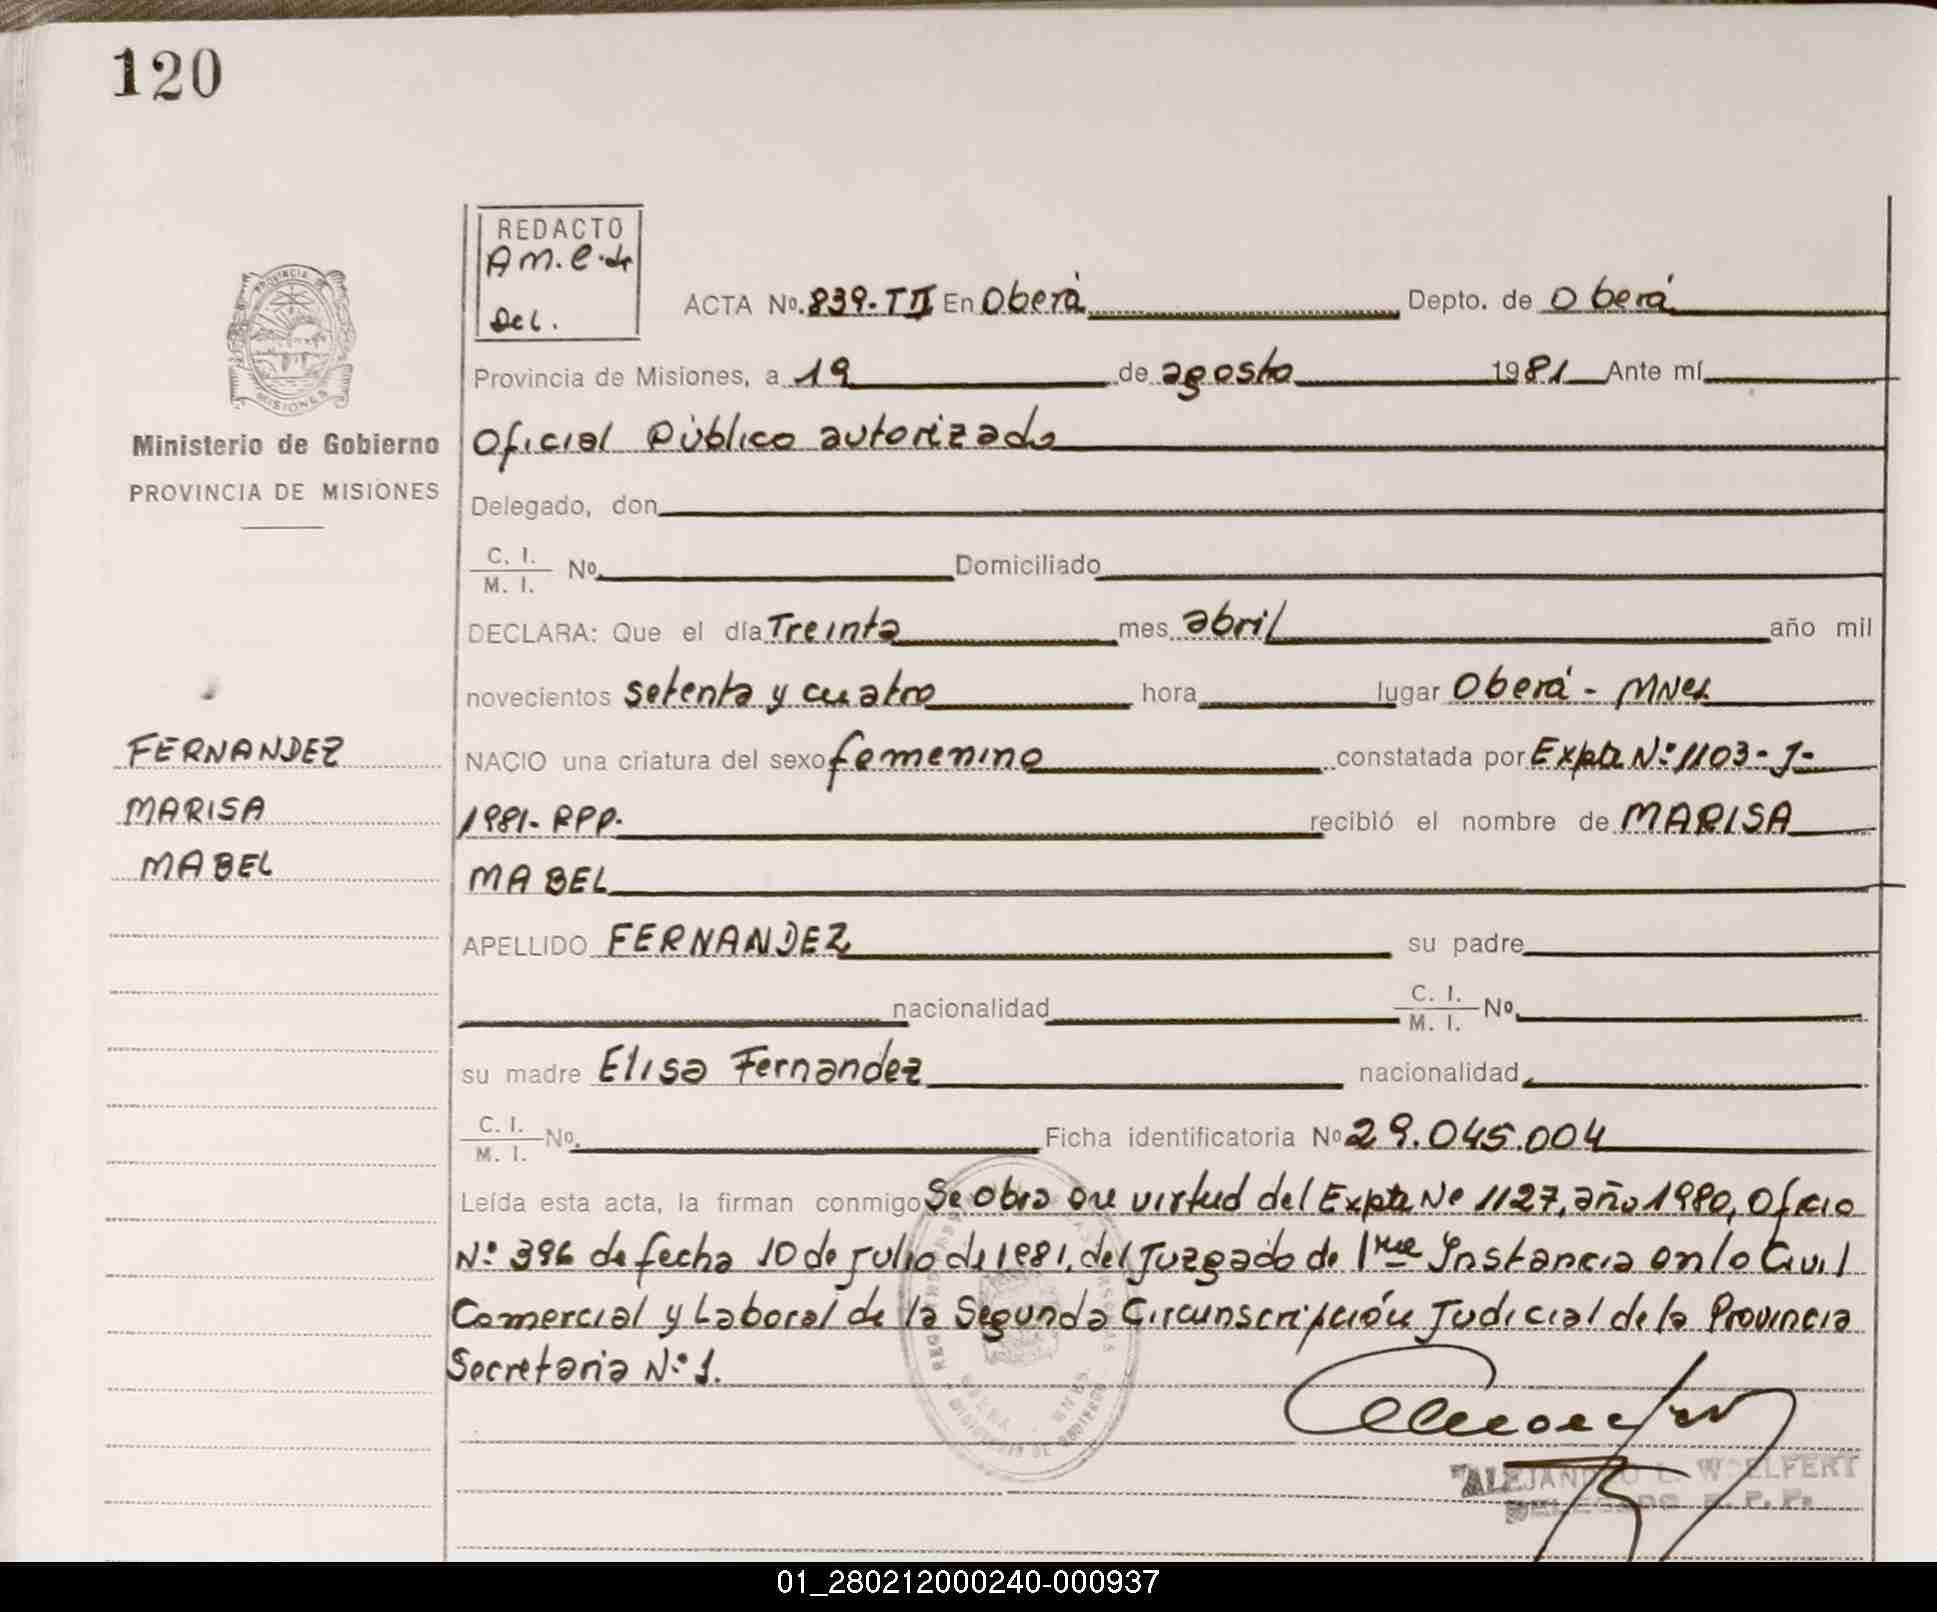 120
REDACTO
Am.e.dr
Del.
ACTA No. 839-TII En Oberá Depto. de Oberá
Provincia de Misiones, a 19 de agosto 1981 Ante mí
Ministerio de Gobierno
PROVINCIA DE MISIONES
Oficial Público autorizado
Delegado, don
C. I.
M. I. No. Domiciliado
DECLARA: Que el día Treinta mes abril año mil
novecientos setenta y cuatro hora lugar Oberá - MNes
FERNANDEZ
MARISA
MABEL
NACIO una criatura del sexo femenino constatada por Expte Nº 1103-J-
1981-RPP. recibió el nombre de MARISA
MABEL
APELLIDO FERNANDEZ su padre
nacionalidad C. I.
M. I. No.
su madre Elisa Fernandez nacionalidad
C. I.
M. I. No. Ficha identificatoria No 29.045.004
Leída esta acta, la firman conmigo Se obra en virtud del Expte Nº 1127, año 1980, Oficio
Nº 396 de fecha 10 de julio de 1981, del Juzgado de 1ra Instancia en lo Civil
Comercial y Laboral de la Segunda Circunscripción Judicial de la Provincia
Secretaria Nº 1.
ALEJANDRO L. WOELFERT
DELEGADO R. P. P.
01_280212000240-000937